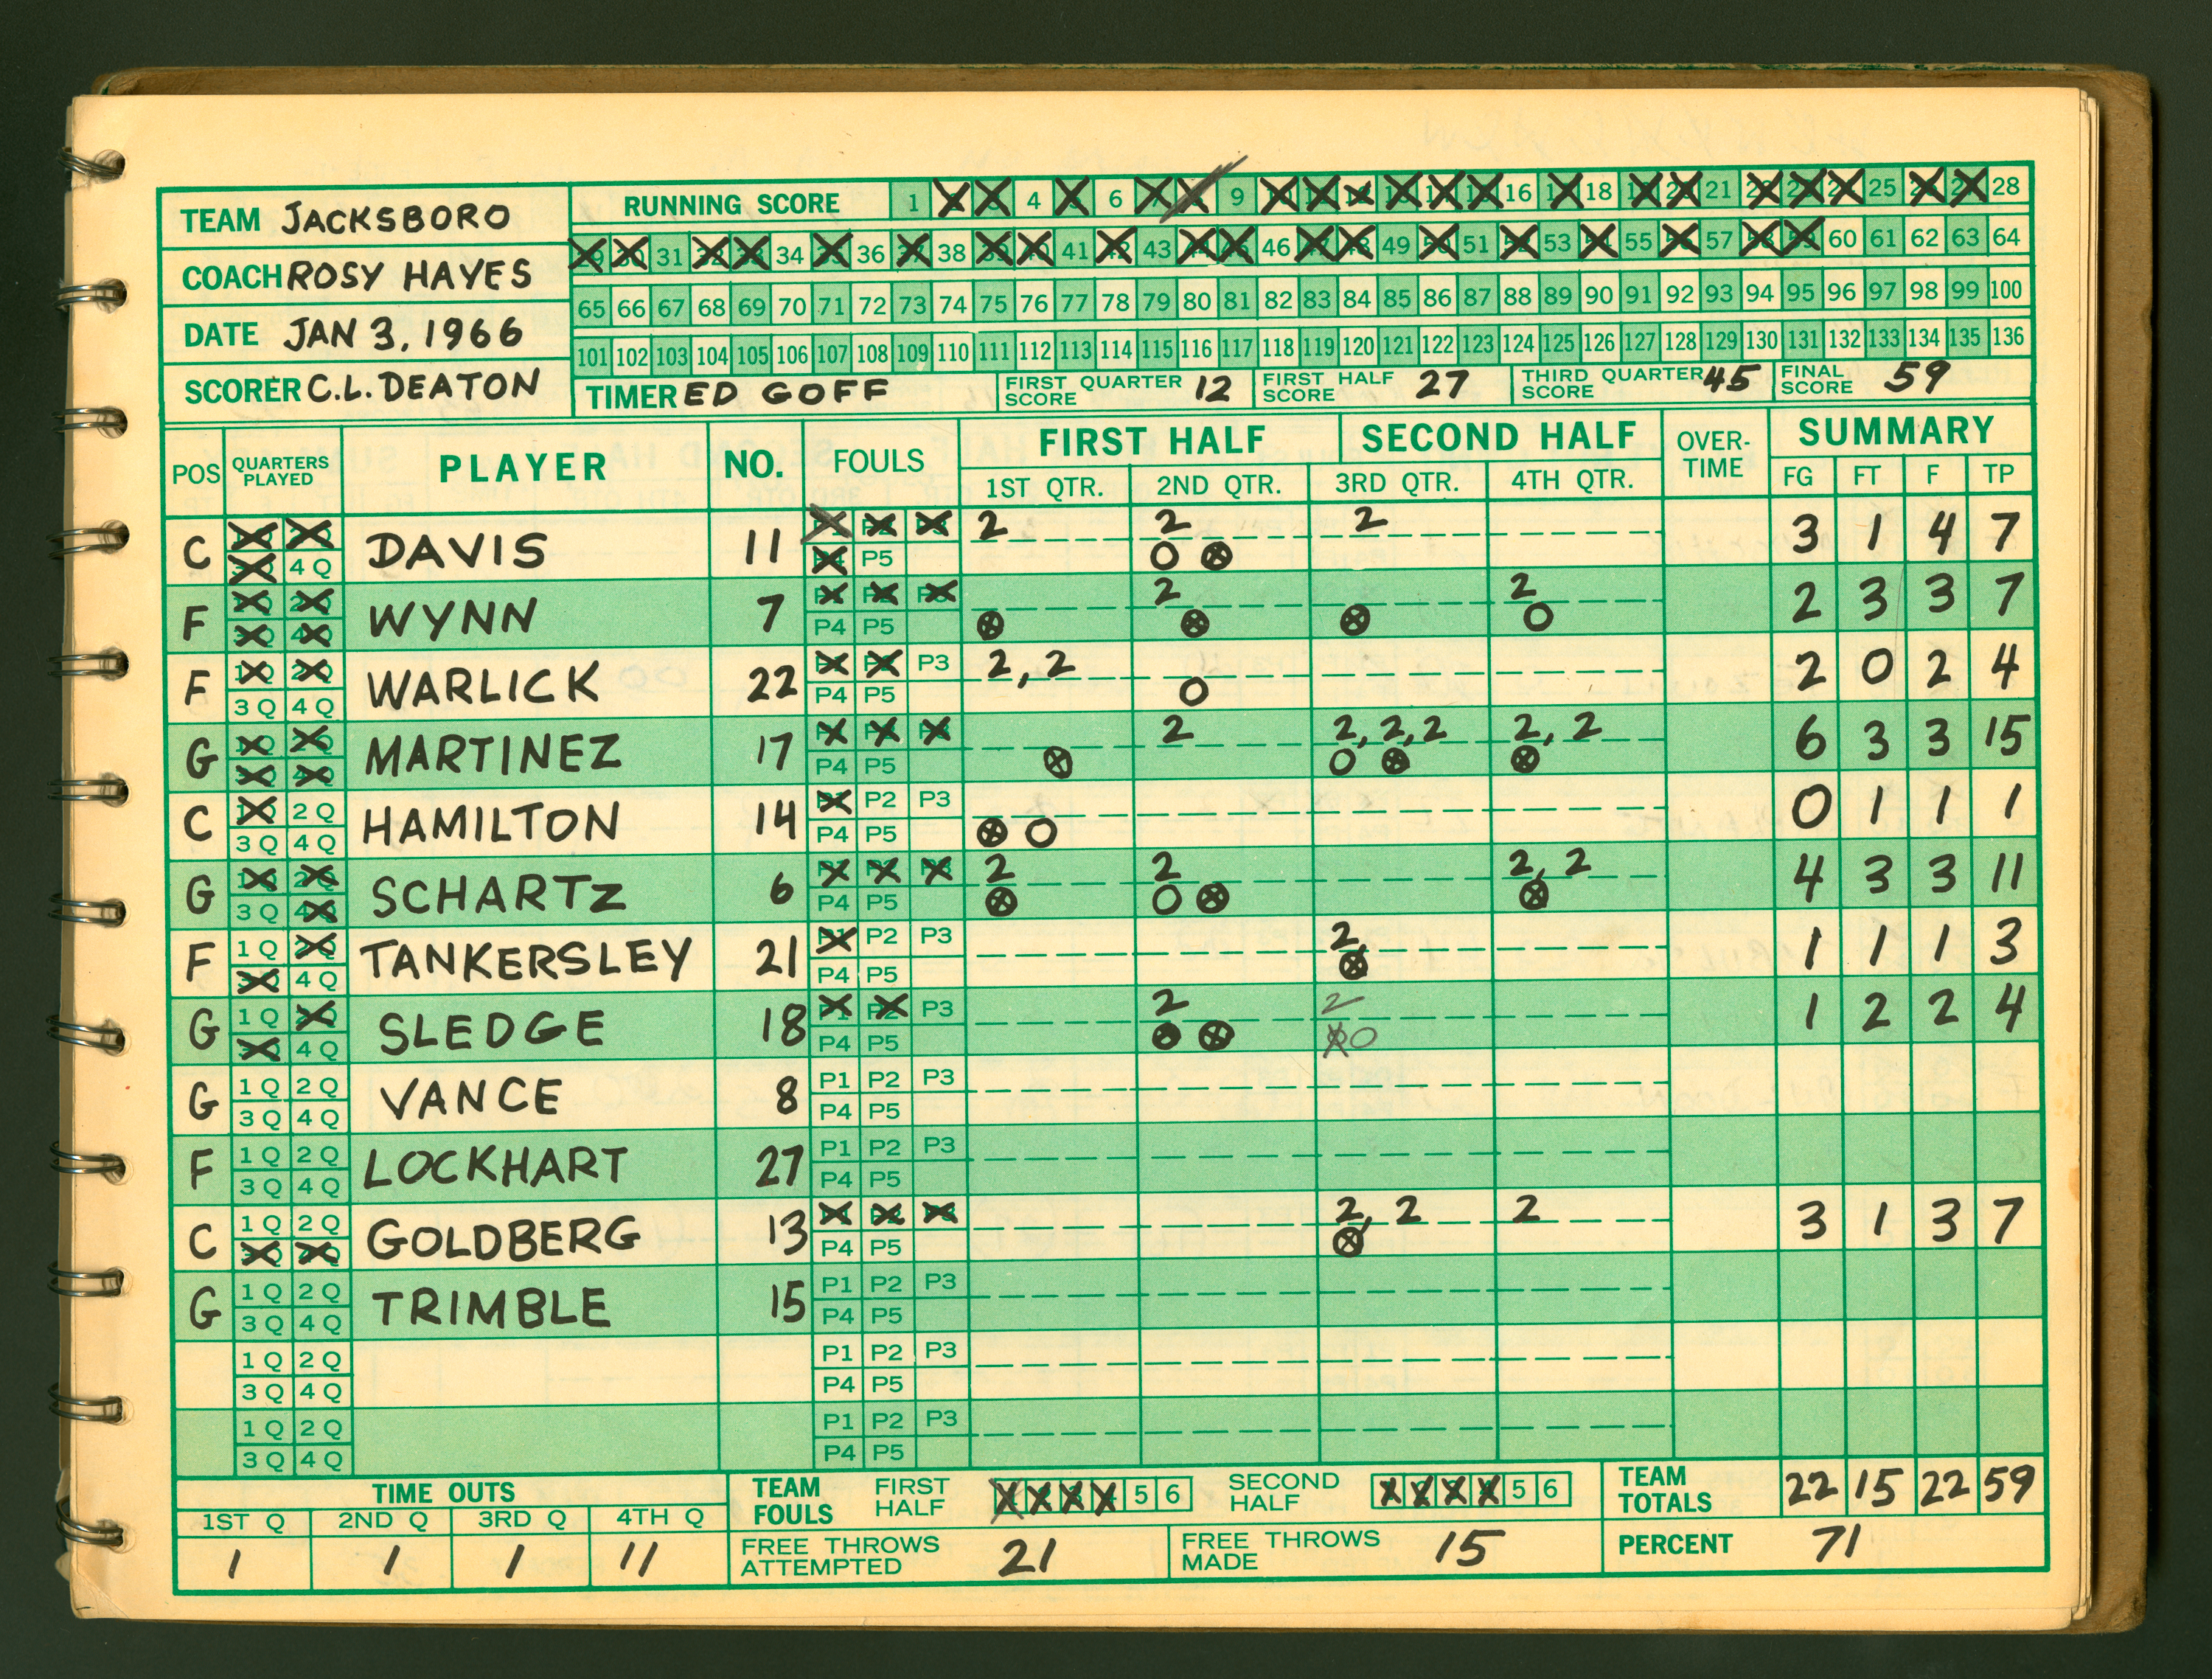 TEAM JACKSBORO
COACH ROSY HAYES
DATE JAN 3, 1966
SCORER C.L. DEATON
RUNNING SCORE 1 2 3 4 5 6 7 8 9 10 11 12 13 14 15 16 17 18 19 20 21 22 23 24 25 26 27 28
29 30 31 32 33 34 35 36 37 38 39 40 41 42 43 44 45 46 47 48 49 50 51 52 53 54 55 56 57 58 59 60 61 62 63 64
65 66 67 68 69 70 71 72 73 74 75 76 77 78 79 80 81 82 83 84 85 86 87 88 89 90 91 92 93 94 95 96 97 98 99 100
101 102 103 104 105 106 107 108 109 110 111 112 113 114 115 116 117 118 119 120 121 122 123 124 125 126 127 128 129 130 131 132 133 134 135 136
TIMER ED GOFF FIRST QUARTER SCORE 12 FIRST HALF SCORE 27 THIRD QUARTER SCORE 45 FINAL SCORE 59
POS QUARTERS PLAYED PLAYER NO. FOULS FIRST HALF SECOND HALF OVER-TIME SUMMARY
1ST QTR. 2ND QTR. 3RD QTR. 4TH QTR. FG FT F TP
C DAVIS 11 2 2 2 3 1 4 7
4 Q P5 O ⊗
F WYNN 7 2 2 2 3 3 7
P4 P5 ⊗ ⊗ ⊗ O
F WARLICK 22 P3 2, 2 2 0 2 4
3 Q 4 Q P4 P5 O
G MARTINEZ 17 2 2, 2, 2 2, 2 6 3 3 15
P4 P5 ⊗ O ⊗ ⊗
C 2 Q HAMILTON 14 P2 P3 0 1 1 1
3 Q 4 Q P4 P5 ⊗ O
G SCHARTZ 6 2 2 2, 2 4 3 3 11
3 Q P4 P5 ⊗ O ⊗ ⊗
F 1 Q TANKERSLEY 21 P2 P3 2, 1 1 1 3
4 Q P4 P5 ⊗
G 1 Q SLEDGE 18 P3 2 2 1 2 2 4
4 Q P4 P5 ⊗ ⊗ O
G 1 Q 2 Q VANCE 8 P1 P2 P3
3 Q 4 Q P4 P5
F 1 Q 2 Q LOCKHART 27 P1 P2 P3
3 Q 4 Q P4 P5
C 1 Q 2 Q GOLDBERG 13 2, 2 2 3 1 3 7
P4 P5 ⊗
G 1 Q 2 Q TRIMBLE 15 P1 P2 P3
3 Q 4 Q P4 P5
1 Q 2 Q P1 P2 P3
3 Q 4 Q P4 P5
1 Q 2 Q P1 P2 P3
3 Q 4 Q P4 P5
TIME OUTS
1ST Q 2ND Q 3RD Q 4TH Q
1 1 1 11
TEAM FOULS FIRST HALF 1 2 3 4 5 6 SECOND HALF 1 2 3 4 5 6
TEAM TOTALS 22 15 22 59
FREE THROWS ATTEMPTED 21 FREE THROWS MADE 15 PERCENT 71